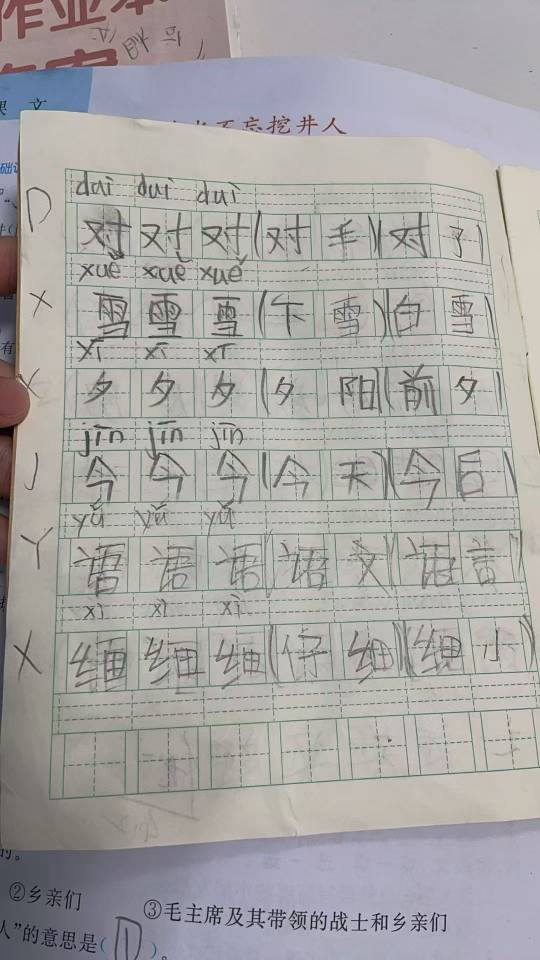 作业本
课 文
不忘挖井人
duì duì duì
D 对 对 对 (对 手) (对 了)
xuě xuě xuě
X 雪 雪 雪 (下 雪) (白 雪)
xī xī xī
X 夕 夕 夕 (夕 阳) (前 夕)
jīn jīn jīn
J 今 今 今 (今 天) (今 后)
yǔ yǔ yǔ
Y 语 语 语 (语 文) (语 言)
xì xì xì
X 细 细 细 (仔 细) (细 小)
的。
②乡亲们 ③毛主席及其带领的战士和乡亲们
人”的意思是( ① )。